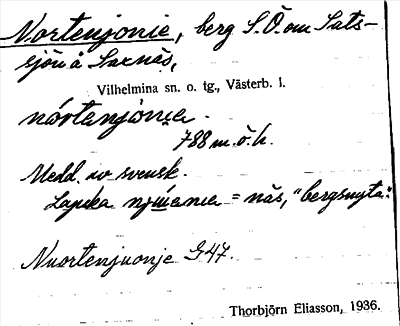 Nortenjonie, berg S.Ö. om Sats-
sjön å Saxnäs,
Vilhelmina sn. o. tg., Västerb. l.
nórtanjònıa.
788 m.ö.h.
Medd. av svensk.
Lapska = näs, "bergsnyta".
Nuortenjuonje G47.
Thorbjörn Eliasson, 1936.